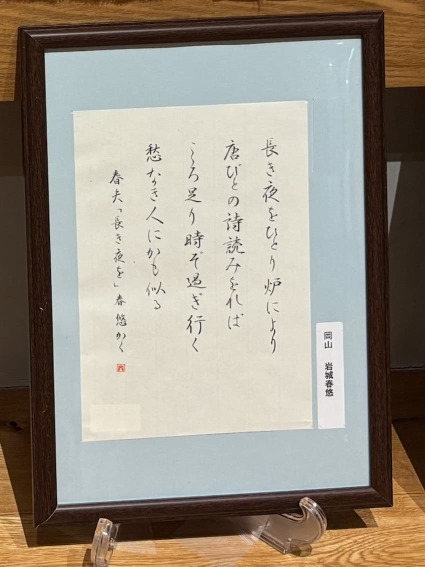 長き夜をひとり炉により
唐びとの詩読みをれば
こころ足り時ぞ過ぎ行く
愁なき人にかも似る
春夫「長き夜を」春悠かく
岡山　岩城春悠